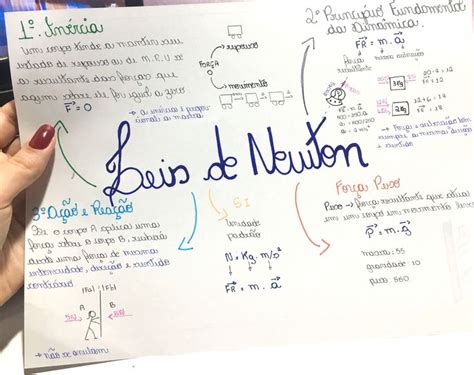 1ª. Inércia
Um corpo tende a manter seu
estado de repouso ou de M.R.U se
a resultante das forças que
agem sobre ele for igual a zero
F = 0
→ a inércia é propor-
cional a massa
repouso
FORÇA
movimento
2º Princípio Fundamental
da Dinâmica.
FR = m . a
força
resultante
massa
aceleração
3Kg
2Kg
→ Força e aceleração têm
sempre a mesma direção
e sentido
Leis de Newton
3ª Ação e Reação
Se o corpo A aplicar uma
força sobre o corpo B, receberá
deste uma força de mesma
intensidade, direção e sentido
contrário
|Fa| |Fb|
A B
→ não se anulam
SI
Unidade
padrão
N = Kg . m/s²
FR = m . a
Força Peso
Peso → força resultante que atua
em um corpo em movimento livre
P = m . g
massa: 55
gravidade: 10
peso: 550